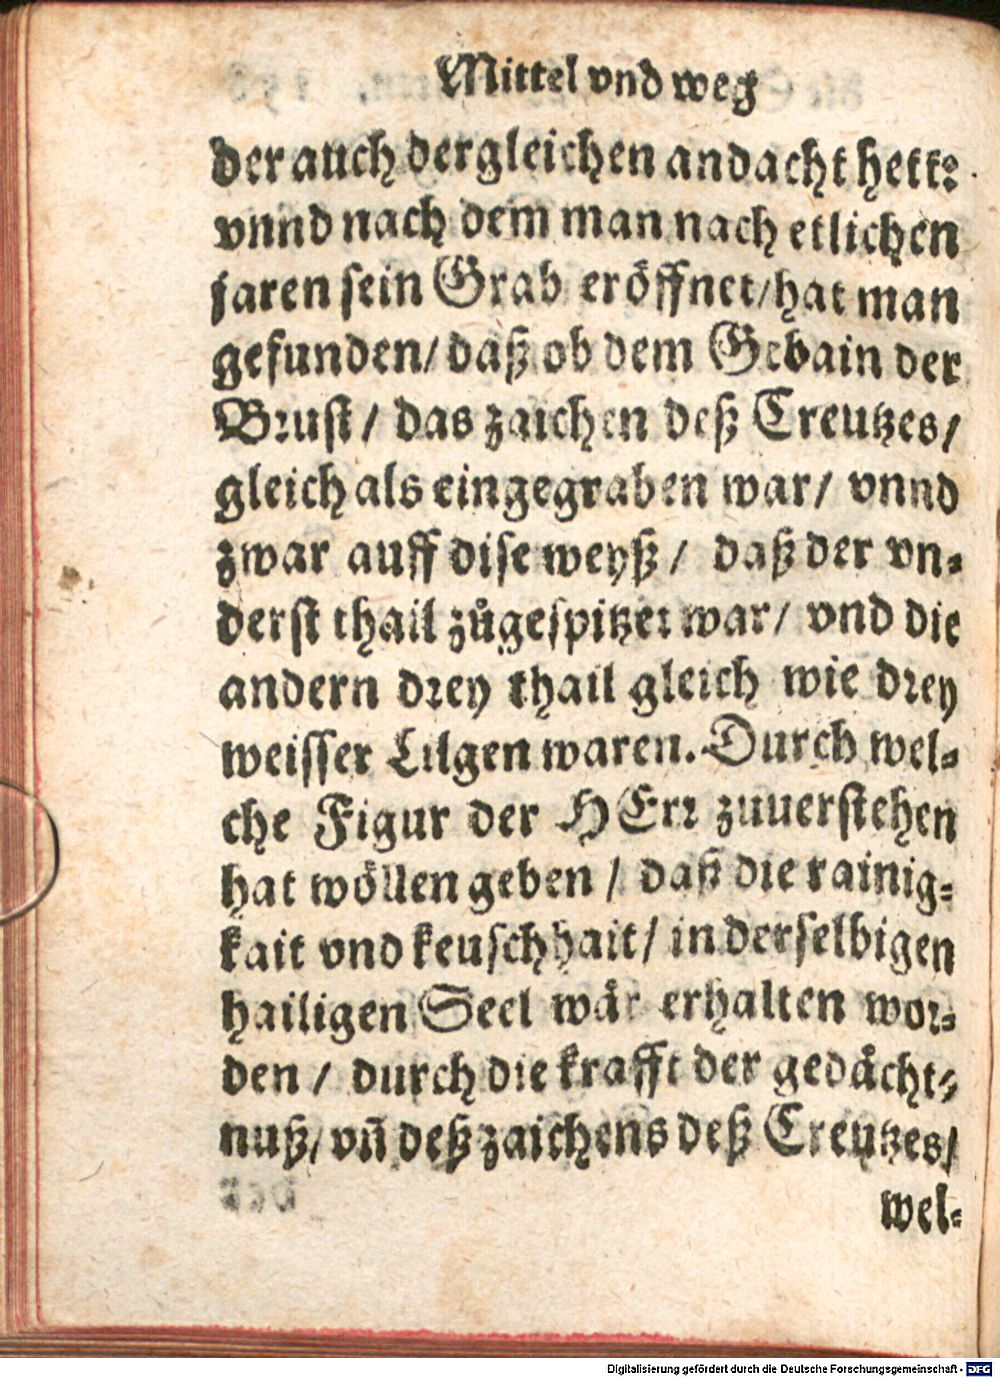 Mittel vnd weg
der auch dergleichen andacht hett:
vnnd nach dem man nach etlichen
jaren sein Grab eröffnet/hat man
gefunden/ daß ob dem Gebain der
Brust/ das zaichen deß Creutzes/
gleich als eingegraben war/ vnnd
zwar auff dise weyß/ daß der vn-
derst thail zůgespitzet war/ vnd die
andern drey thail gleich wie drey
weisser Lilgen waren. Durch wel-
che Figur der HErr zuuerstehen
hat wöllen geben/ daß die rainig-
kait vnd keuschhait/ in derselbigen
hailigen Seel wår erhalten wor-
den/ durch die krafft der gedåcht-
nuß/ vñ deß zaichens deß Creutzes/
wel-
Digitalisierung gefördert durch die Deutsche Forschungsgemeinschaft - DFG